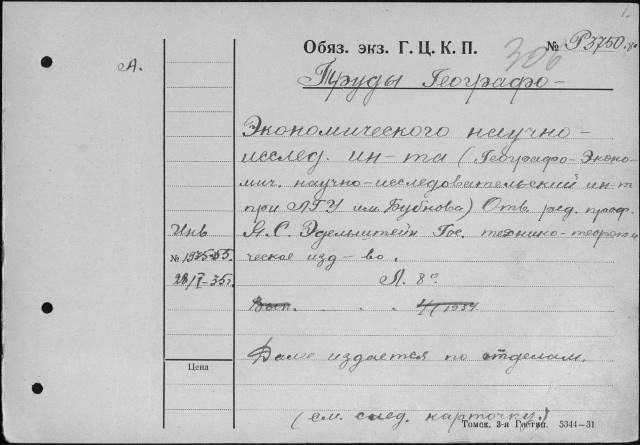 1.
Обяз. экз. Г. Ц. К. П.
№ Р3750
306
А.
Труды Географо-
Экономического научно-
исслед. ин-та (Географо-Эконо-
мич. научно-исследовательский ин-т
при ЛГУ им. Бубнова) Отв. ред. проф.
Инв Я. С. Эдельштейн Гос. технико-теорети
ческое изд-во.
28/I-35г. Л. 8°
Вып. . . . 4/1934
Далее издается по отделам.
Цена
(см. след. карточку.)
Томск. 3-я Гостип. 5344—31